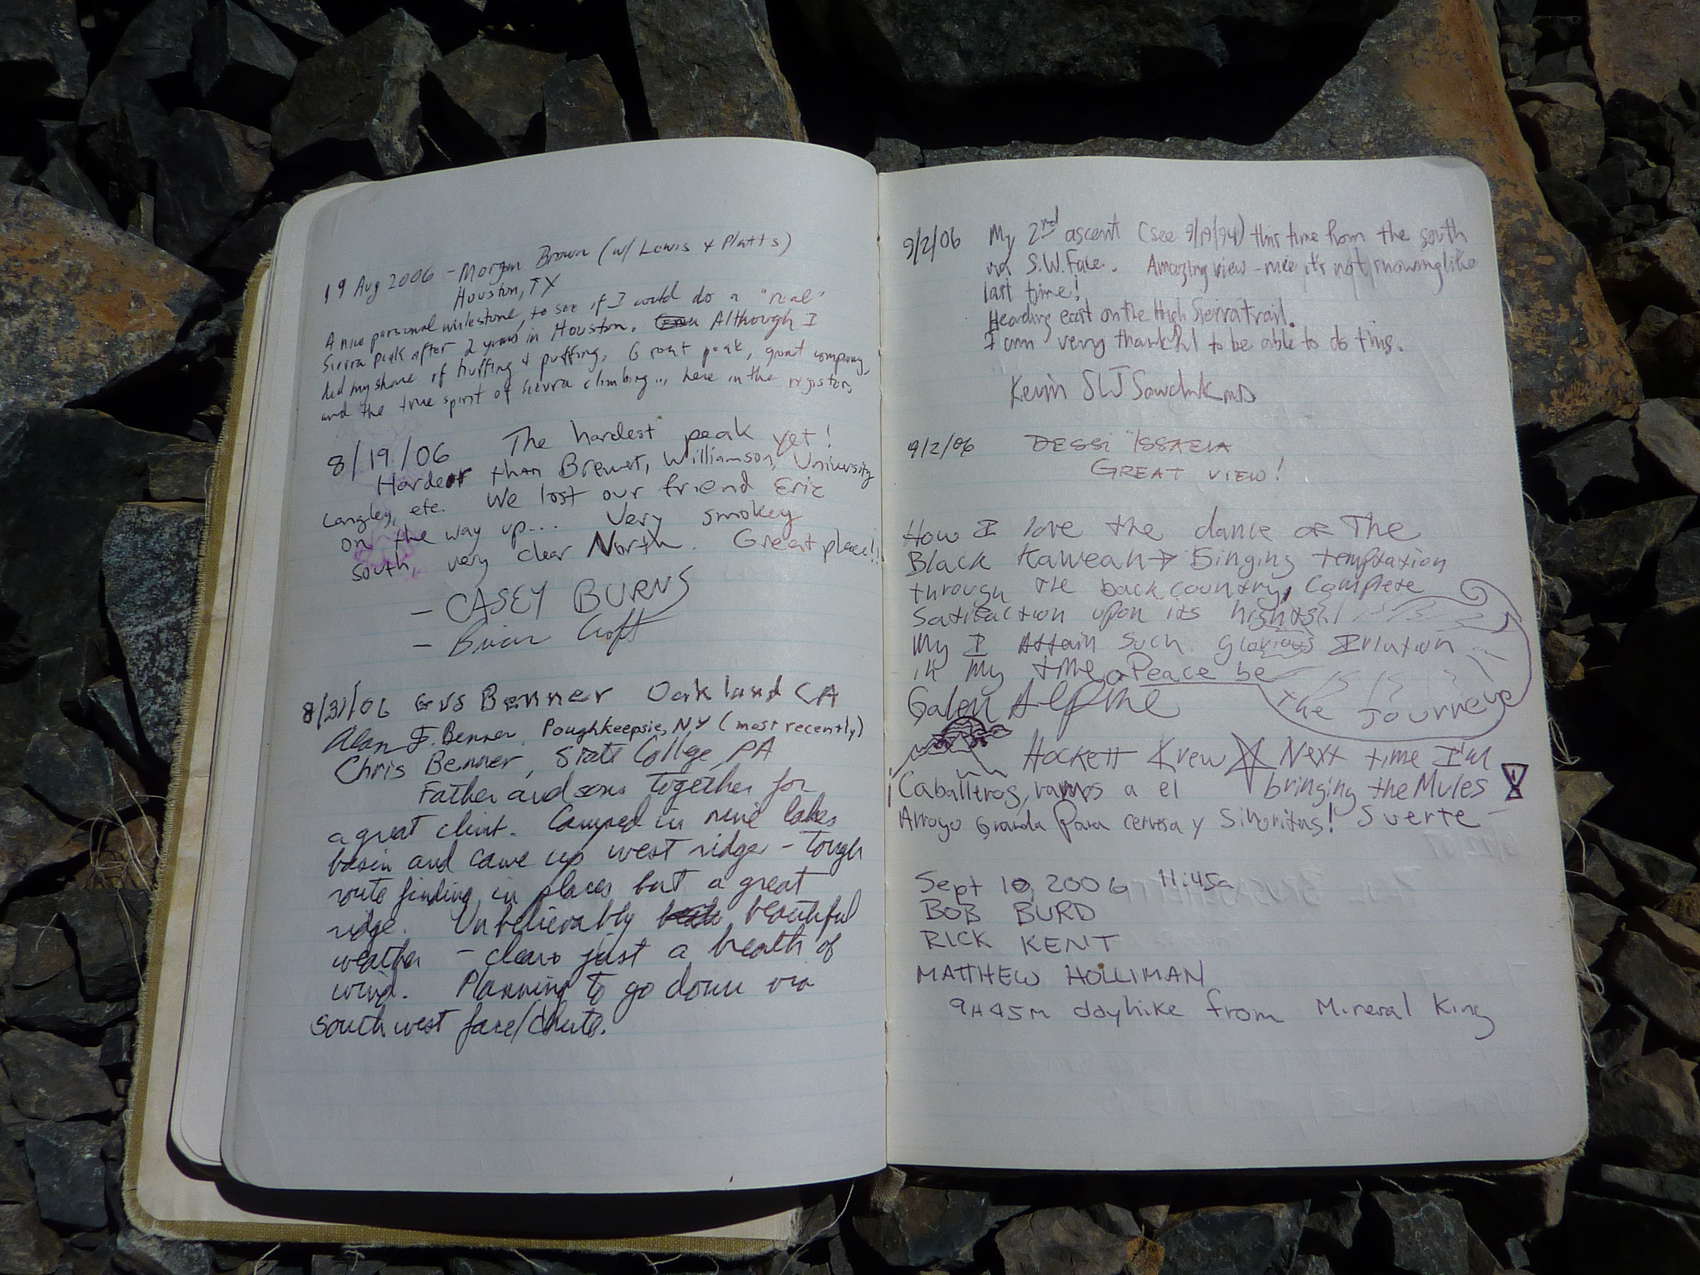 19 Aug 2006 - Morgan Brown (w/ Lewis + Platts)
Houston, TX
A nice personal milestone, to see if I could do a "real"
Sierra Peak after 2 years in Houston. Although I
did my share of huffing & puffing. Great peak, great company,
and the true spirit of Sierra climbing... here in the register,
8/19/06 The hardest peak yet!
Harder than Brewer, Williamson, University
Langley, etc. We lost our friend Eric
on the way up... Very smokey
South, very clear North. Great place!!
- CASEY BURNS
- Brian Croft
8/31/06 Gus Benner Oakland CA
Alan F. Benner, Poughkeepsie, NY (most recently)
Chris Benner, State College, PA
Father and sons together for
a great climb. Camped in nine lakes
basin and came up west ridge - tough
route finding in places but a great
ridge. Unbelievably beautiful
weather - clear, just a breath of
wind. Planning to go down via
southwest face/chute.
9/2/06 My 2nd ascent (see 9/19/94) this time from the south
via S.W. Face. Amazing view - nice it's not snowing like
last time!
Heading east on the High Sierra trail.
I am very thankful to be able to do this.
Kevin SLJ Sawchuk MD
9/2/06 DESSI
GREAT VIEW!
How I love the dance of The
Black Kaweah → Singing temptation
through the backcountry, Complete
Satifaction upon its hights!
My I Attain Such Glorious
in my time. Peace be
the Journeye
Galen Alpine
Hockett Krew Next time I'm
bringing the Mules
¡Caballeros, vamos a el
Arroyo Granda Para cervesa y Sinoritas! Suerte -
Sept 10, 2006 11:45a
BOB BURD
RICK KENT
MATTHEW HOLLIMAN
9H45M dayhike from Mineral King